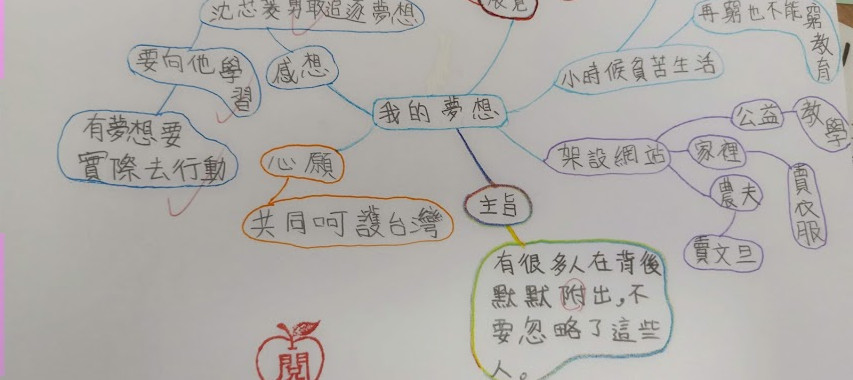 沈芯菱勇敢追逐夢想
再窮也不能窮
教育
要向他學
習
感想
小時候貧苦生活
我的夢想
有夢想要
實際去行動
公益
教學
心願
架設網站
家裡
農夫
賣衣服
主旨
共同呵護台灣
賣文旦
有很多人在背後
默默附出，不
要忽略了這些
人。
閱